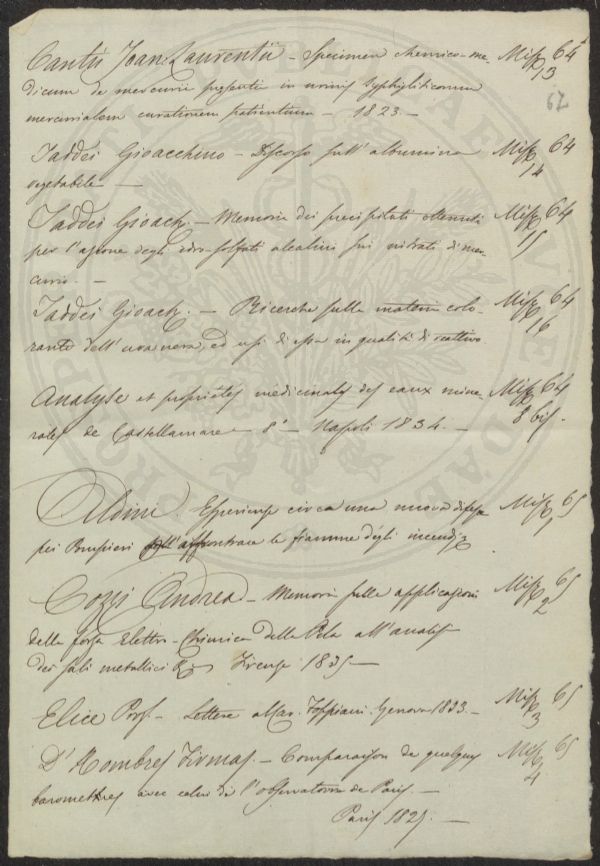 Cantù Joan: Laurentii - Specimen chemico-me-
dicum de mercurii presentia in urinis syphyliticorum
mercurialem curationem patientium - 1823. -
Misc 64
13
62
Taddei Gioacchino - Discorso sull'albumina
vegetabile -
Misc 64
14
Taddei Gioach. - Memoria dei precipitati
per l'azione degli idro-solfati alcalini sui nitrati di mer-
curio. -
Misc 64
15
Taddei Gioach. - Ricerche sulla materia colo-
rante dell'uva nera, ed usi di essa in qualità di reattivo
Misc 64
16
Analyse et proprietés medicinales des eaux mine-
rales de Castellamare - 8° - Napoli 1834. -
Misc 64
8 bis.
Aldini. Esperienze circa una nuova difesa
pei Pompieri affrontare le fiamme degli incendj
Misc 65
1
Cozzi Andrea - Memoria sulle applicazioni
della forza Elettro-Chimica della Pila all'analisi
dei sali metallici Firenze 1835 -
Misc 65
2
Elice Prof. - Lettere Genova 1833. -
Misc 65
3
D'Hombres Firmas. - Comparaison de quelques
barometres avec celui de l'observatoire de Paris. -
Paris 1825. -
Misc 65
4